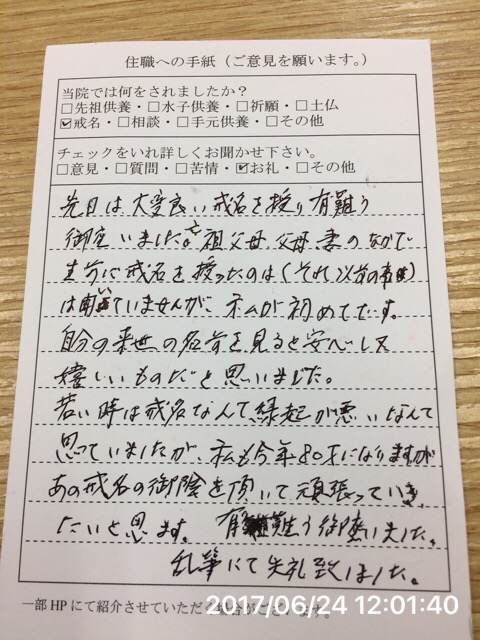 住職への手紙（ご意見を願います。）
当院では何をされましたか？
□先祖供養・□水子供養・□祈願・□土仏
☑戒名・□相談・□手元供養・□その他
チェックをいれ詳しくお聞かせ下さい。
□意見・□質問・□苦情・☑お礼・□その他
先日は大変良い戒名を授り有難う
御座いました。祖父母、父母、妻のなかで
生前に戒名を授ったのは（それ以前の事
は聞いていませんが、私が初めてです。
自分の来世の名前を見ると安心し又
嬉しいものだと思いました。
若い時は戒名なんて縁起が悪いなんて
思っていましたが、私も今年80才になりますが
あの戒名の御陰を頂いて頑張っていき
たいと思います。有難う御座いました。
乱筆にて失礼致しました。
一部HPにて紹介させていただく場合がございます。
2017/06/24 12:01:40